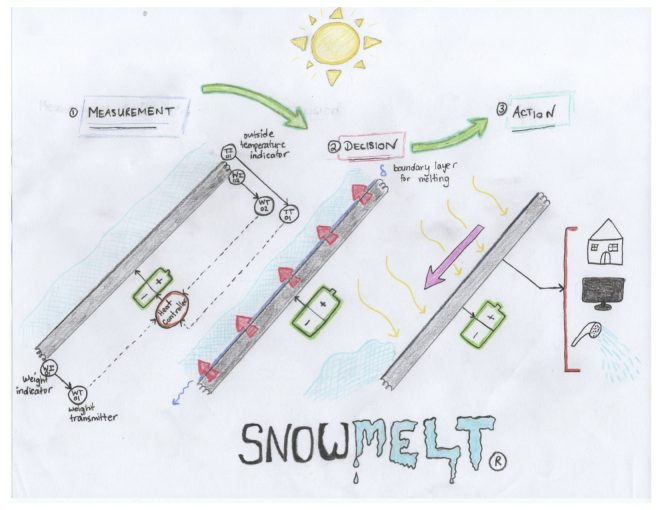 ① MEASUREMENT
② DECISION
③ ACTION
outside
temperature
indicator
TI
01
WI
02
WT
02
TT
01
δ boundary layer
for melting
- +
Heat
Controller
- +
- +
WI
01
Weight
indicator
WT
01
weight
transmitter
SNOWMELT ®